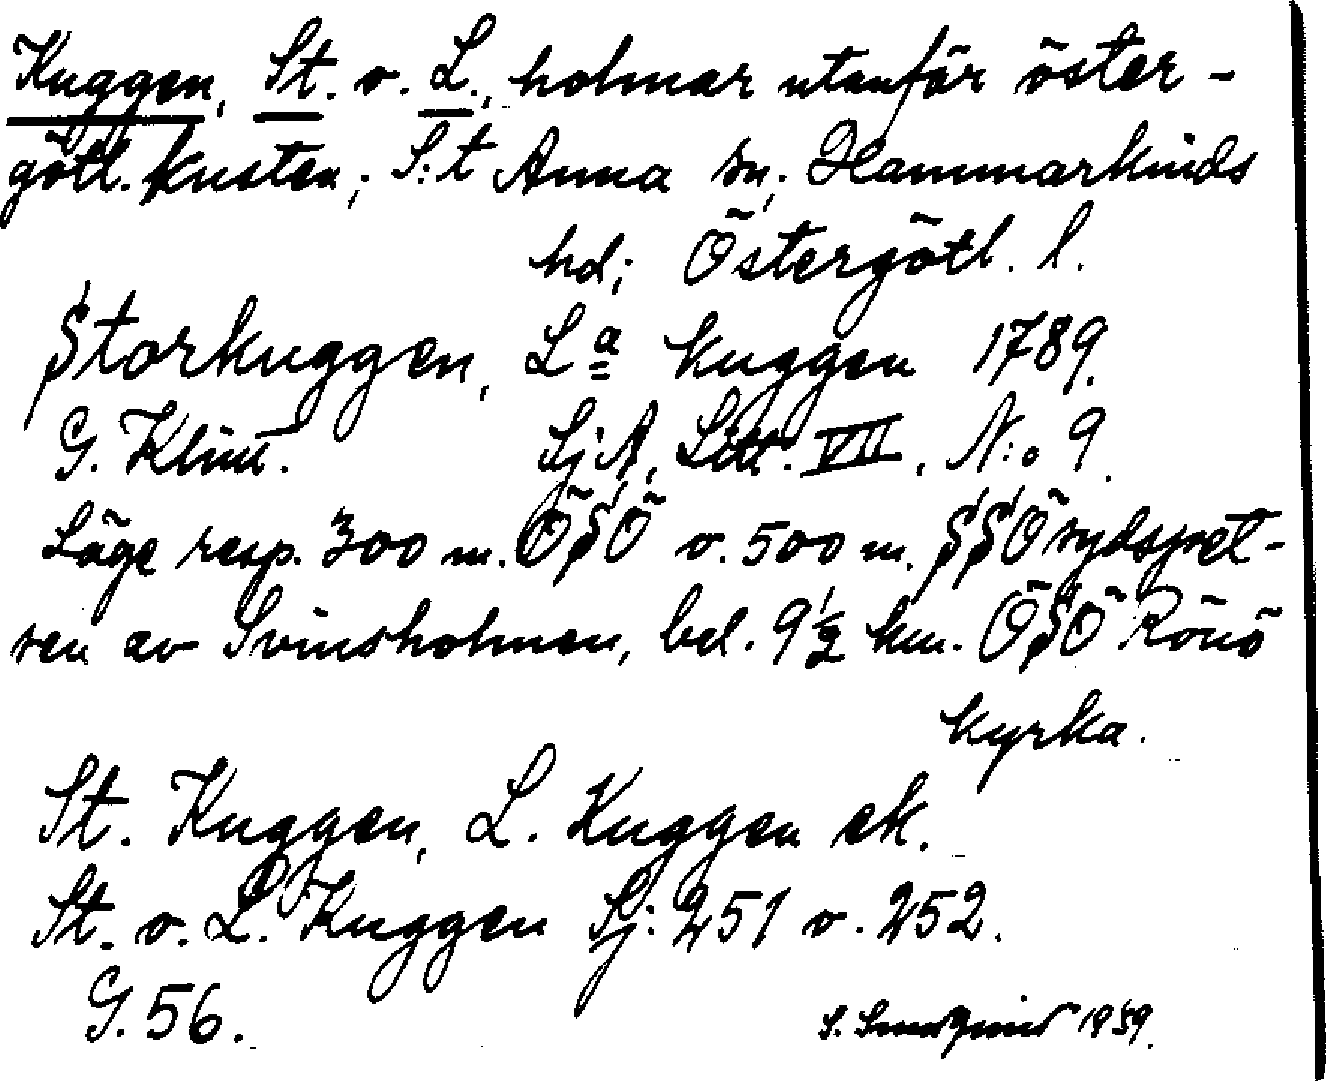 Kuggen, St. o. L., holmar utanför öster-
götl. kusten; S:t Anna sn; Hammarkinds
hd; Östergötl. l.
Storkuggen, La kuggen 1789.
G. Klint. SjA, Litt. VII, N:o 9.
Läge resp. 300 m. ÖSÖ o. 500 m. SSÖ sydspet-
sen av Svinsholmen, bel. 9 1/2 km. ÖSÖ Rönö
kyrka.
St. Kuggen, L. Kuggen ek.
St. o. L. Kuggen Sj: 251 o. 252.
G. 56.
S. 1959.